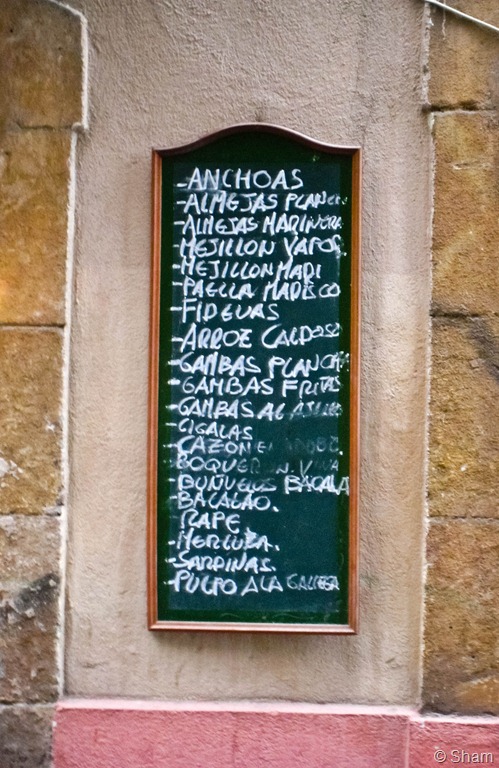 -ANCHOAS
-ALMEJAS PLANCH
-ALMEJAS MARINERA
-MEJILLON VAPOR.
-MEJILLON MARI
-PAELLA MARISCO
-FIDEUAS
-ARROZ CALDOSO
-GAMBAS PLANCHA
-GAMBAS FRITAS
-GAMBAS AL AJILLO
-CIGALAS
-CAZON EN ADOBO.
-BOQUERON. VINA
-BUÑUELOS BACALA
-BACALAO.
-RAPE
-MERLUZA.
-SARDINAS.
-PULPO A LA GALLEGA
© Sham